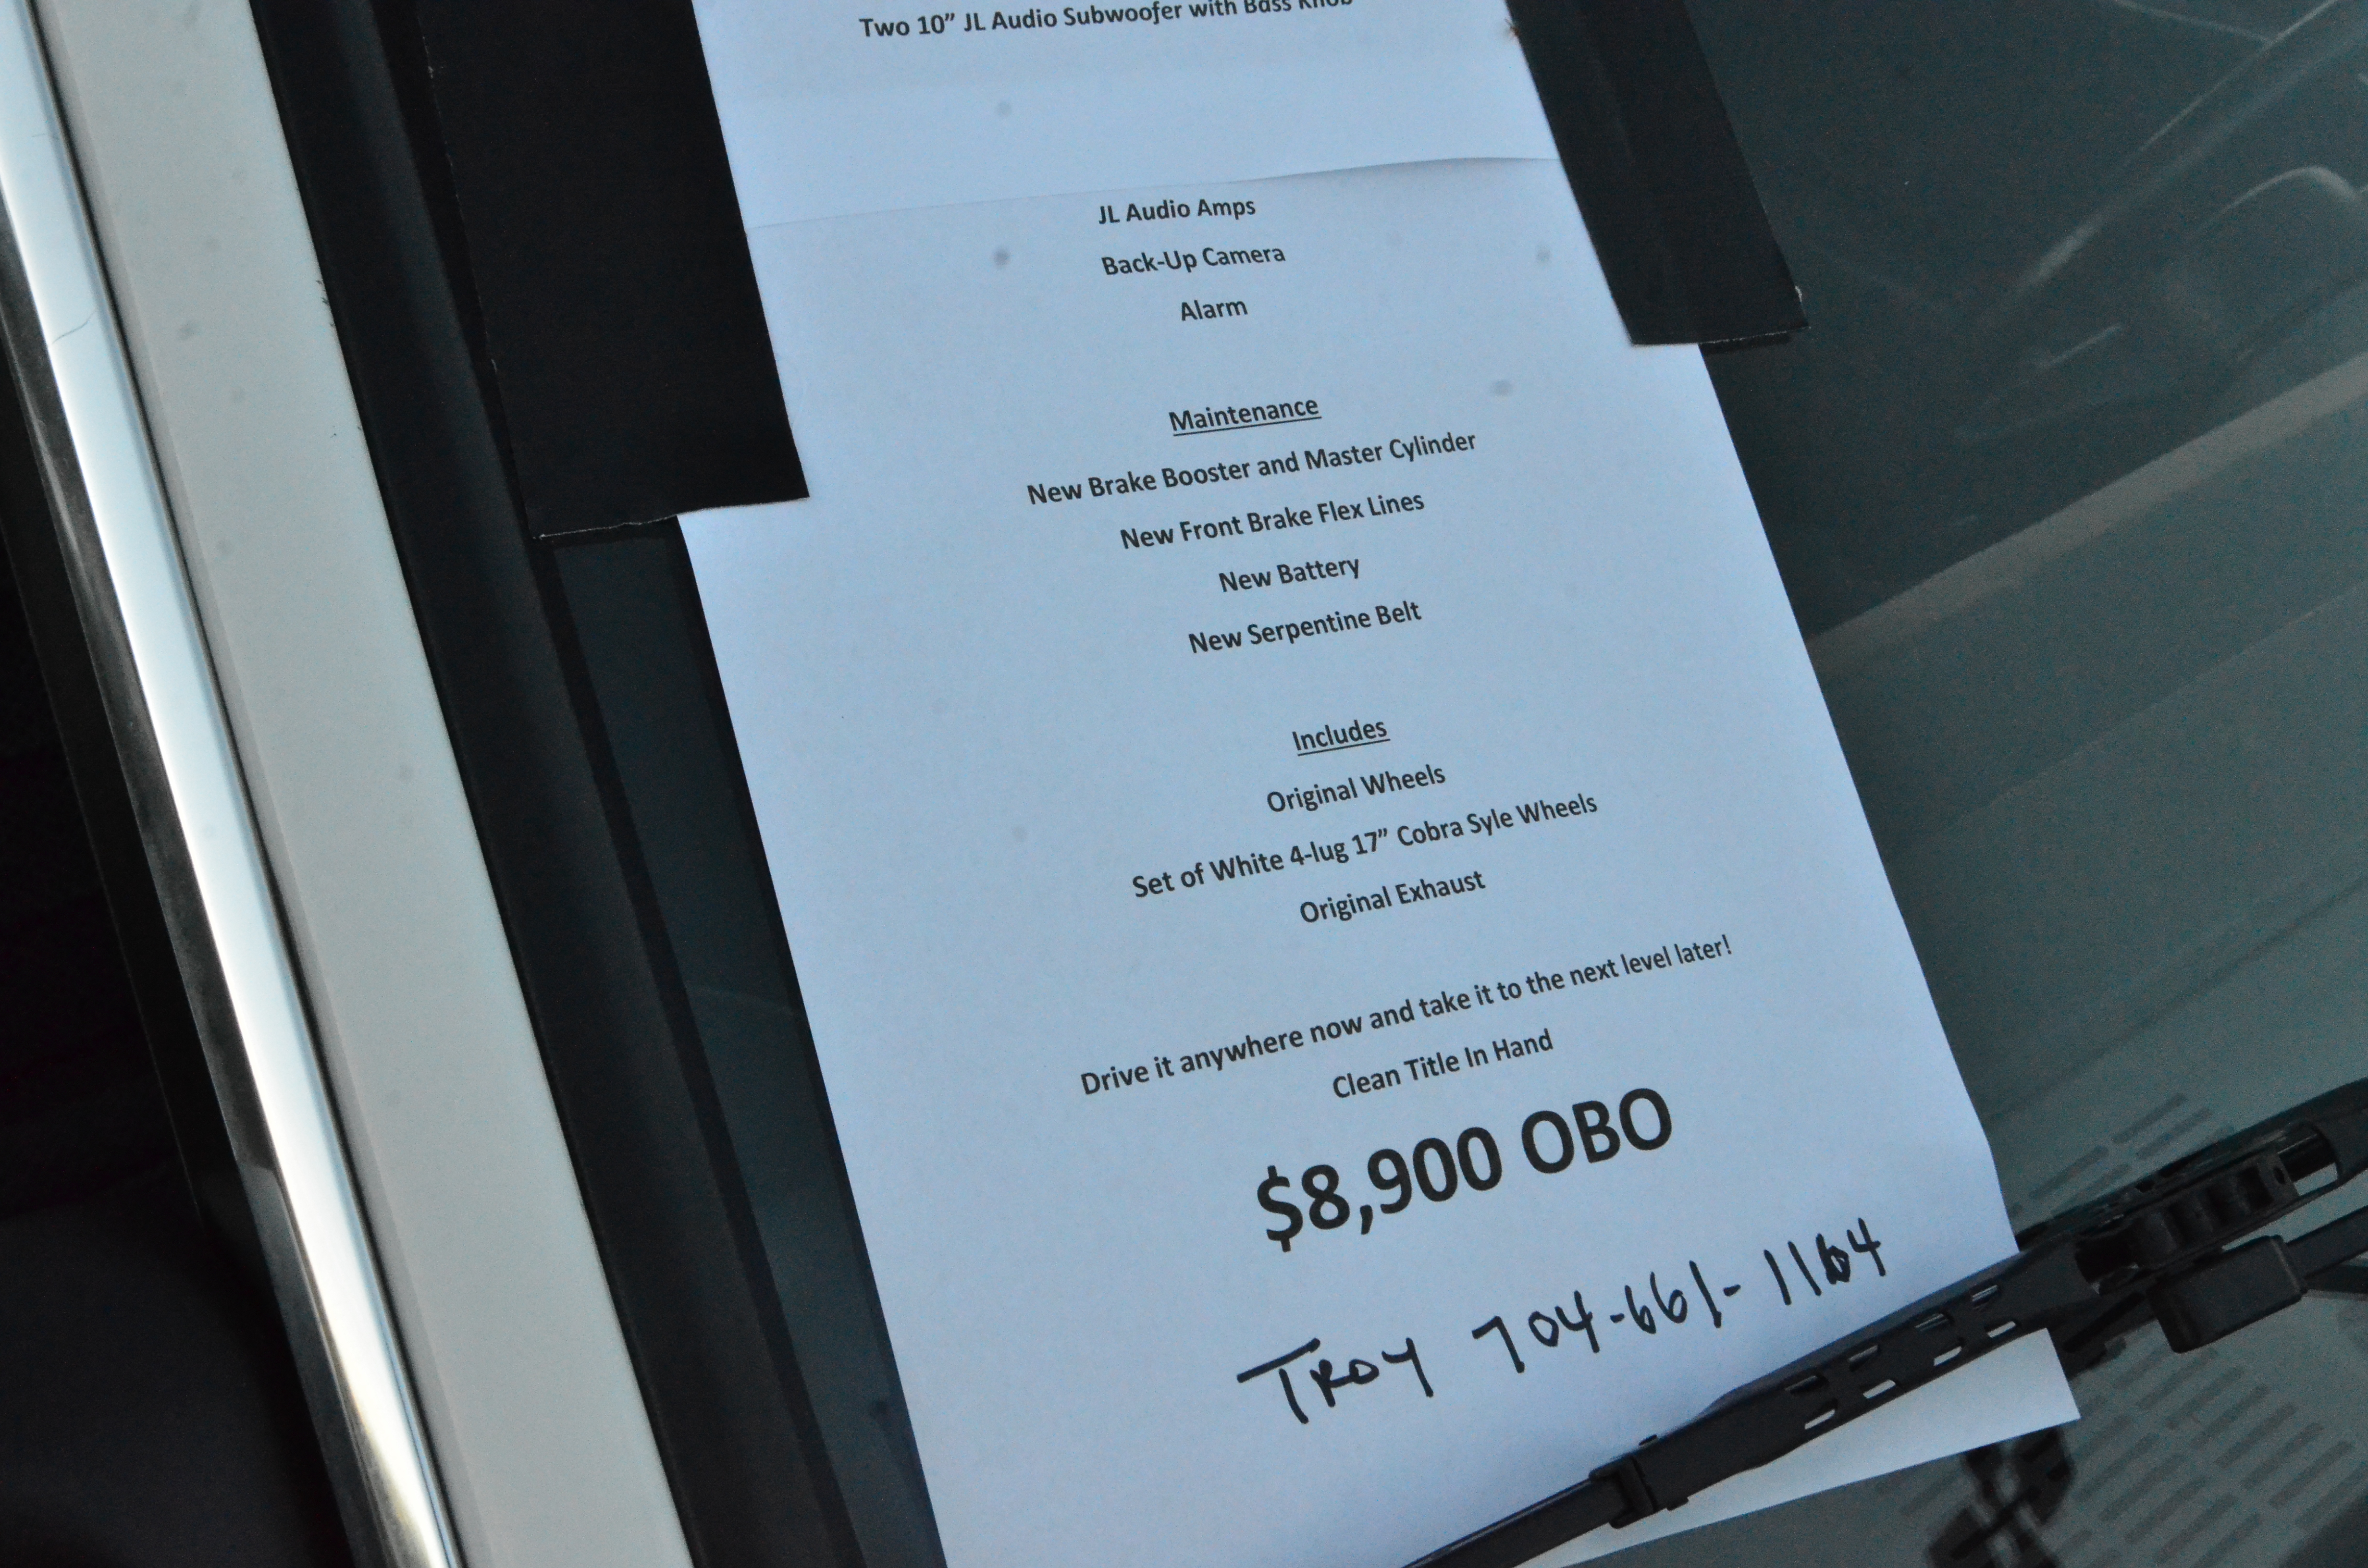 Two 10” JL Audio Subwoofer with Bass Knob
JL Audio Amps
Back-Up Camera
Alarm
Maintenance
New Brake Booster and Master Cylinder
New Front Brake Flex Lines
New Battery
New Serpentine Belt
Includes
Original Wheels
Set of White 4-lug 17” Cobra Syle Wheels
Original Exhaust
Drive it anywhere now and take it to the next level later!
Clean Title In Hand
$8,900 OBO
TROY 704-661-1164